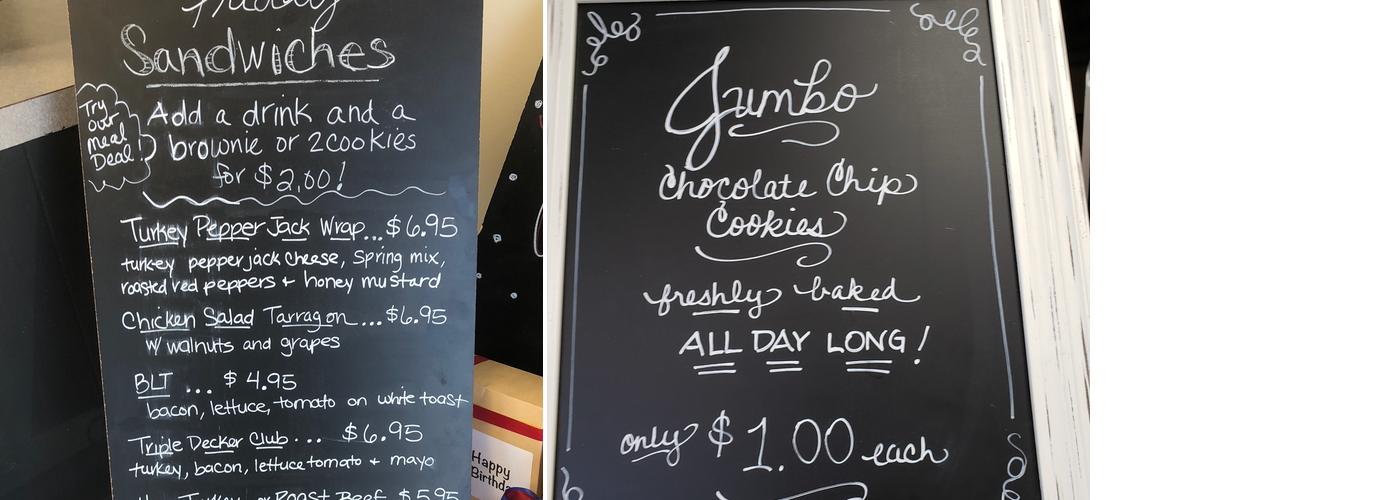 Friday
Sandwiches
Try
our
meal
Deal!
Add a drink and a
brownie or 2cookies
for $2.00!
Turkey Pepper Jack Wrap...$6.95
turkey pepperjack cheese, Spring mix,
roasted red peppers + honey mustard
Chicken Salad Tarragon...$6.95
w/ walnuts and grapes
BLT ... $4.95
bacon, lettuce, tomato on white toast
Triple Decker Club... $6.95
turkey, bacon, lettuce tomato + mayo
Turkey or Roast Beef $5.95
Happy
Birthda
Jumbo
Chocolate Chip
Cookies
freshly baked
ALL DAY LONG!
only $1.00 each